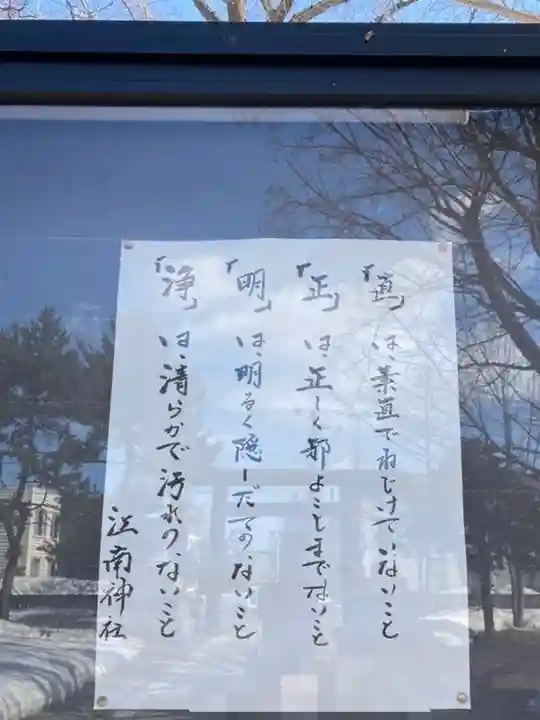 「直」は、素直でねじけていないこと
「正」は、正しく邪よこしまでないこと
「明」は、明るく隠しだてのないこと
「浄」は、清らかで汚れのないこと
江南神社